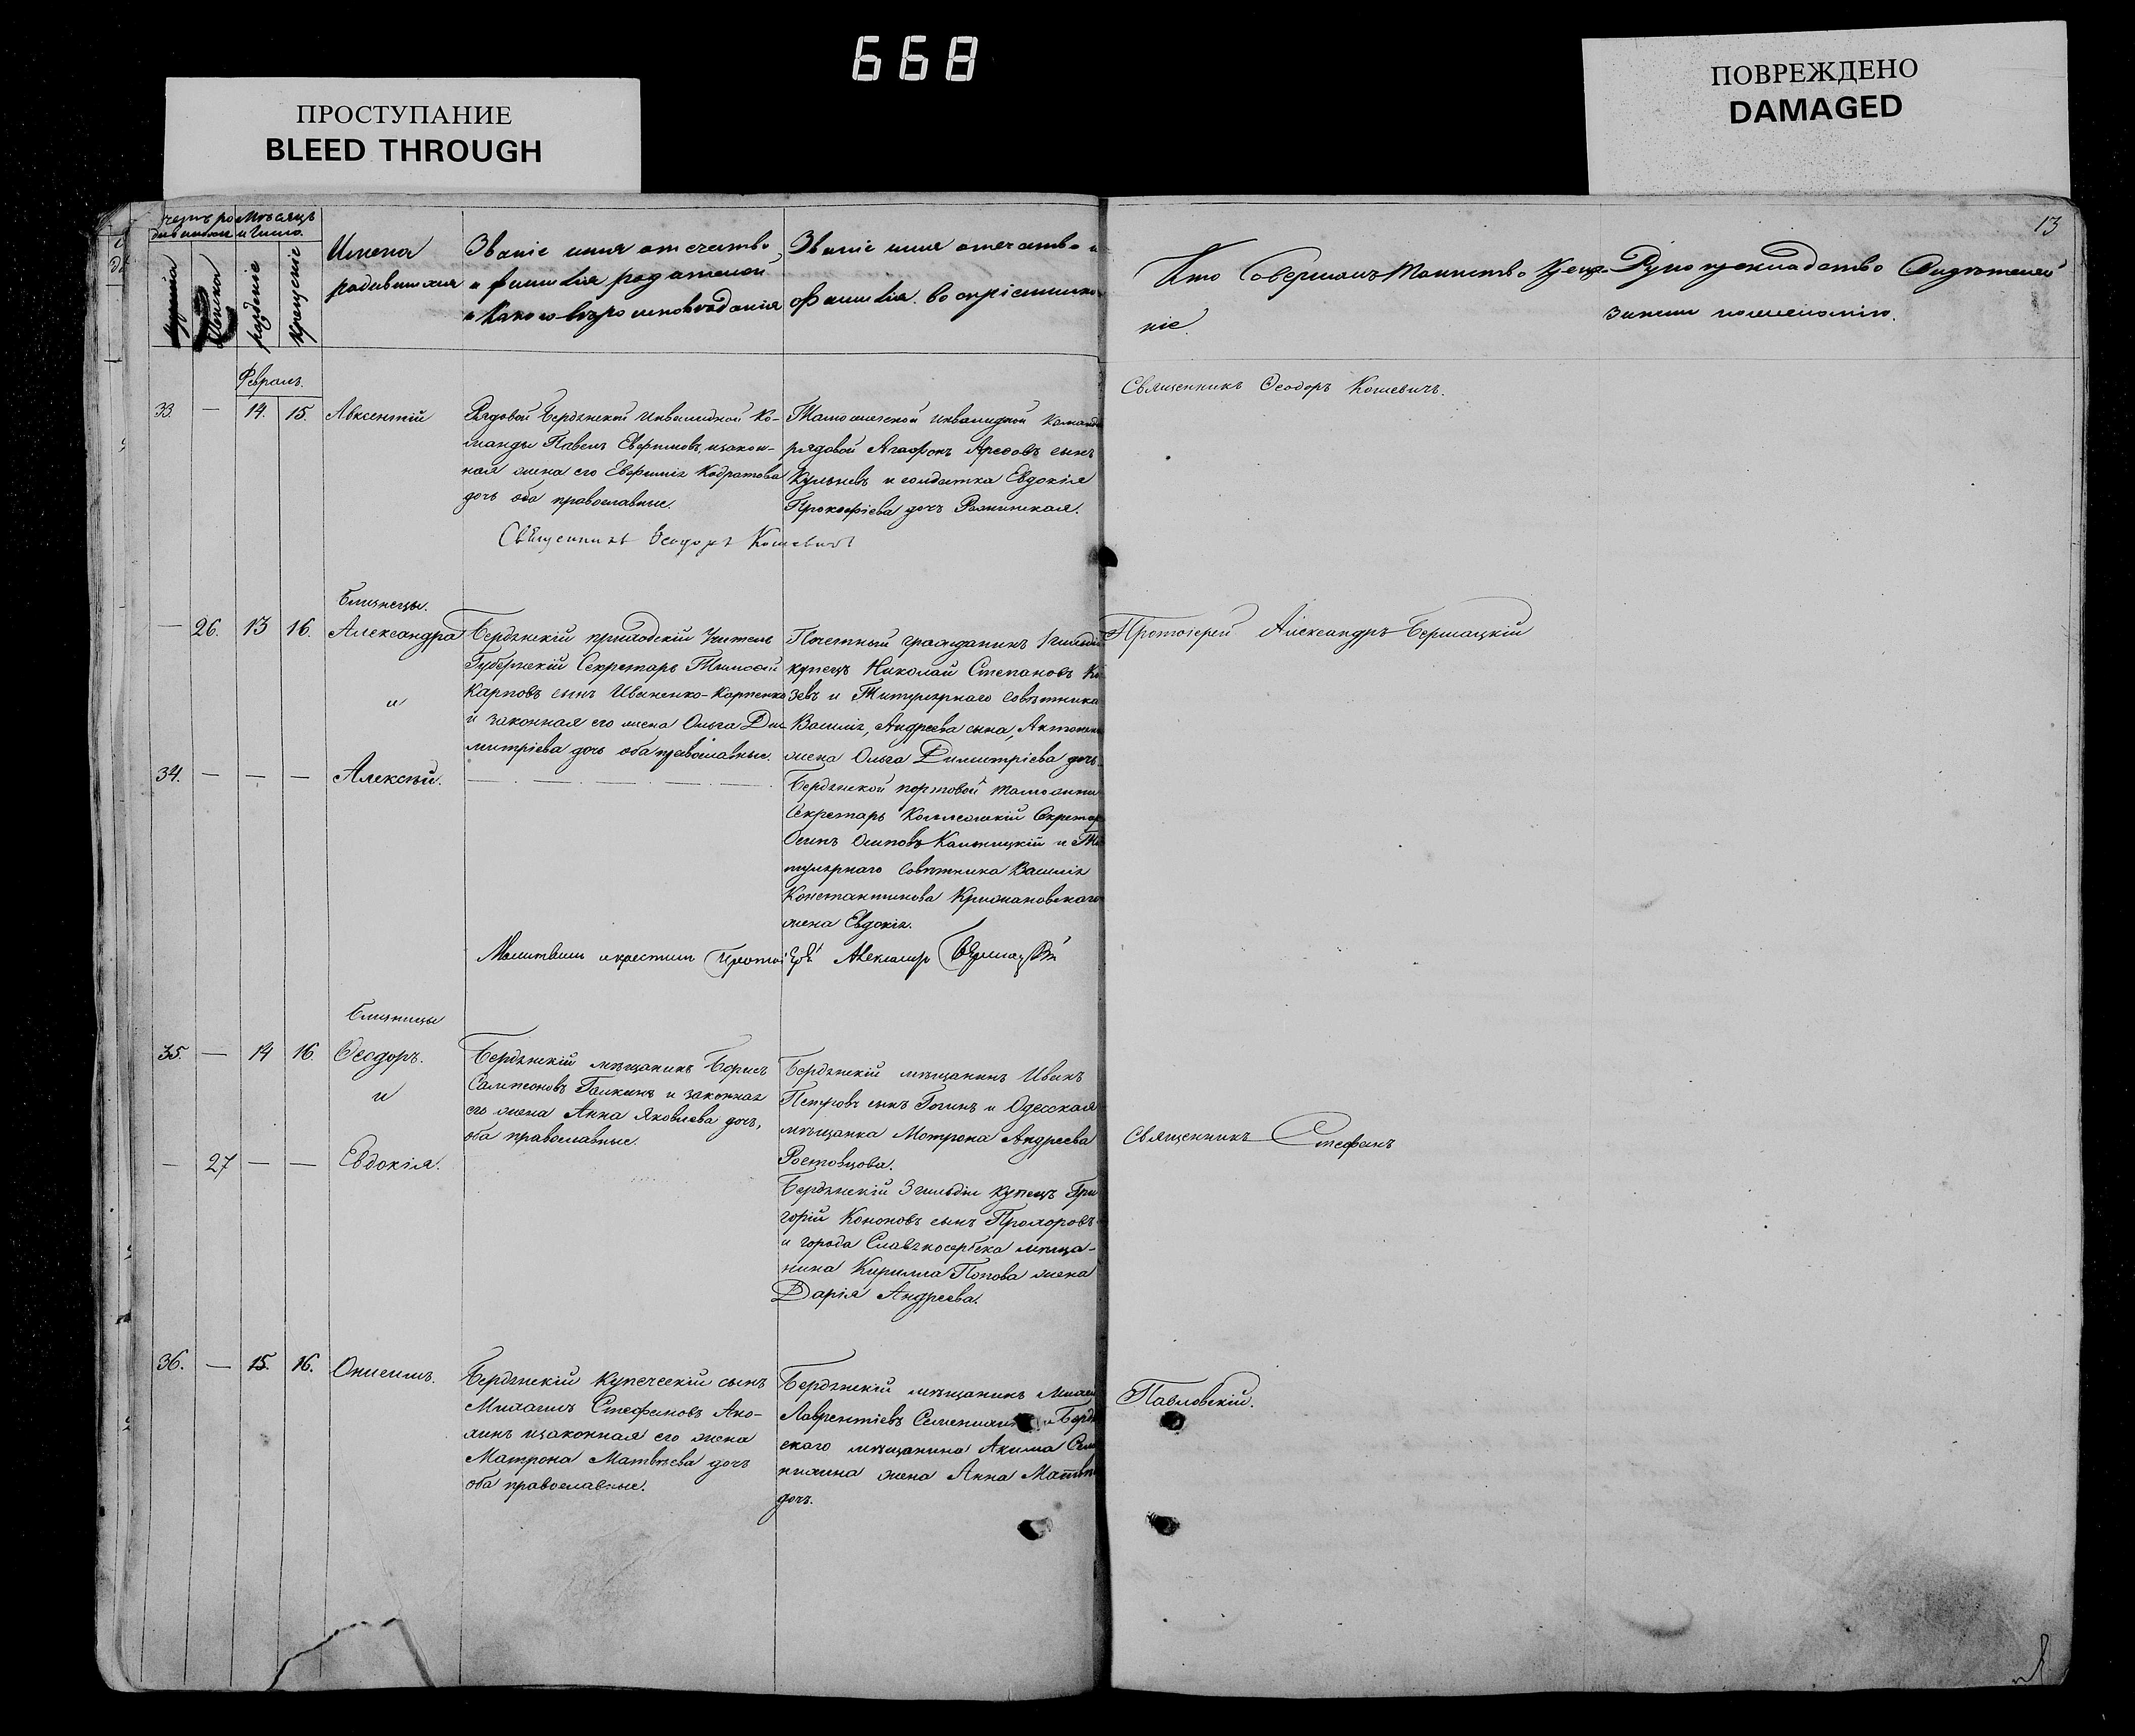 668
ПРОСТУПАНИЕ
BLEED THROUGH
ПОВРЕЖДЕНО
DAMAGED
13
Мѣсяцъ
и число.
рожденіе
крещеніе
Имена
родившихся
Званіе имя отечество
и фамилія родителей
и какого вѣроисповѣданія
Званіе имя отечество и
фамилія воспріемнико
Кто совершалъ таинство креще-
ніе.
Рукоприкладство свидѣтелей
записи по желанію.
Февраль.
33. — 14. 15. Авксентій
Рядовой Бердянской Инвалидной Ко-
манды Павелъ Евфимовъ, изакон-
ная жена его Евфимія Кодратова
дочь оба православные.
Тамо инвалидной команды
рядовой Агафонъ сынъ
и солдатка Евдокія
Прокофіева дочь
Священникъ Ѳеодоръ Кошевичъ.
Священникъ Ѳеодоръ Кошевичъ
Близнецы.
— 26. 13 16. Александра
и
Бердянскій приходскій Учитель
Губернскій Секретарь Тимоѳей
Карповъ сынъ Иваненко-Карпенко
и законная его жена Ольга Ди-
митріева дочь оба православные.
Почетный гражданинъ 1 гильдіи
купецъ Николай Степановъ Ко
зевъ и Титулярнаго совѣтника
Василія, Андреева сына,
жена Ольга Димитріева дочь.
Протоіерей Александръ Бершацкій
34. — — — Алексѣй.
Бердянской портовой таможни
Секретарь Коллежскій Секретар
Осипъ Осиповъ и Ти
тулярнаго Совѣтника Василія
Константинова Крижановскаго
жена Евдокія.
Молитвилъ и крестилъ Протоіерей Александръ
Близницы
35. — 14 16. Ѳеодоръ.
и
Бердянскій мѣщанинъ Борисъ
Сампсоновъ Галкинъ и законная
его жена Анна Яковлева дочь,
оба православные.
Бердянскій мѣщанинъ Иванъ
Петровъ сынъ и Одесская
мѣщанка Мотрона Андреева
Ростовцова.
Священникъ Стефанъ
— 27 — — Евдокія.
Бердянскій 3 гильдіи купецъ Гри
горій Кононовъ сынъ Прохоровъ
и города Славяносербска мѣща-
нина Кирилла Попова жена
Дарія Андреева.
36. — 15. 16. Онисимъ.
Бердянскій купеческій сынъ
Михаилъ Стефановъ Ано-
хинъ изаконная его жена
Матрона Матвѣева дочь
оба православные.
Бердянскій мѣщанинъ Михаи
Лаврентіевъ и Бердян
скаго мѣщанина Акима Семе
нихина жена Анна Матвѣе
дочь.
Павловскій.